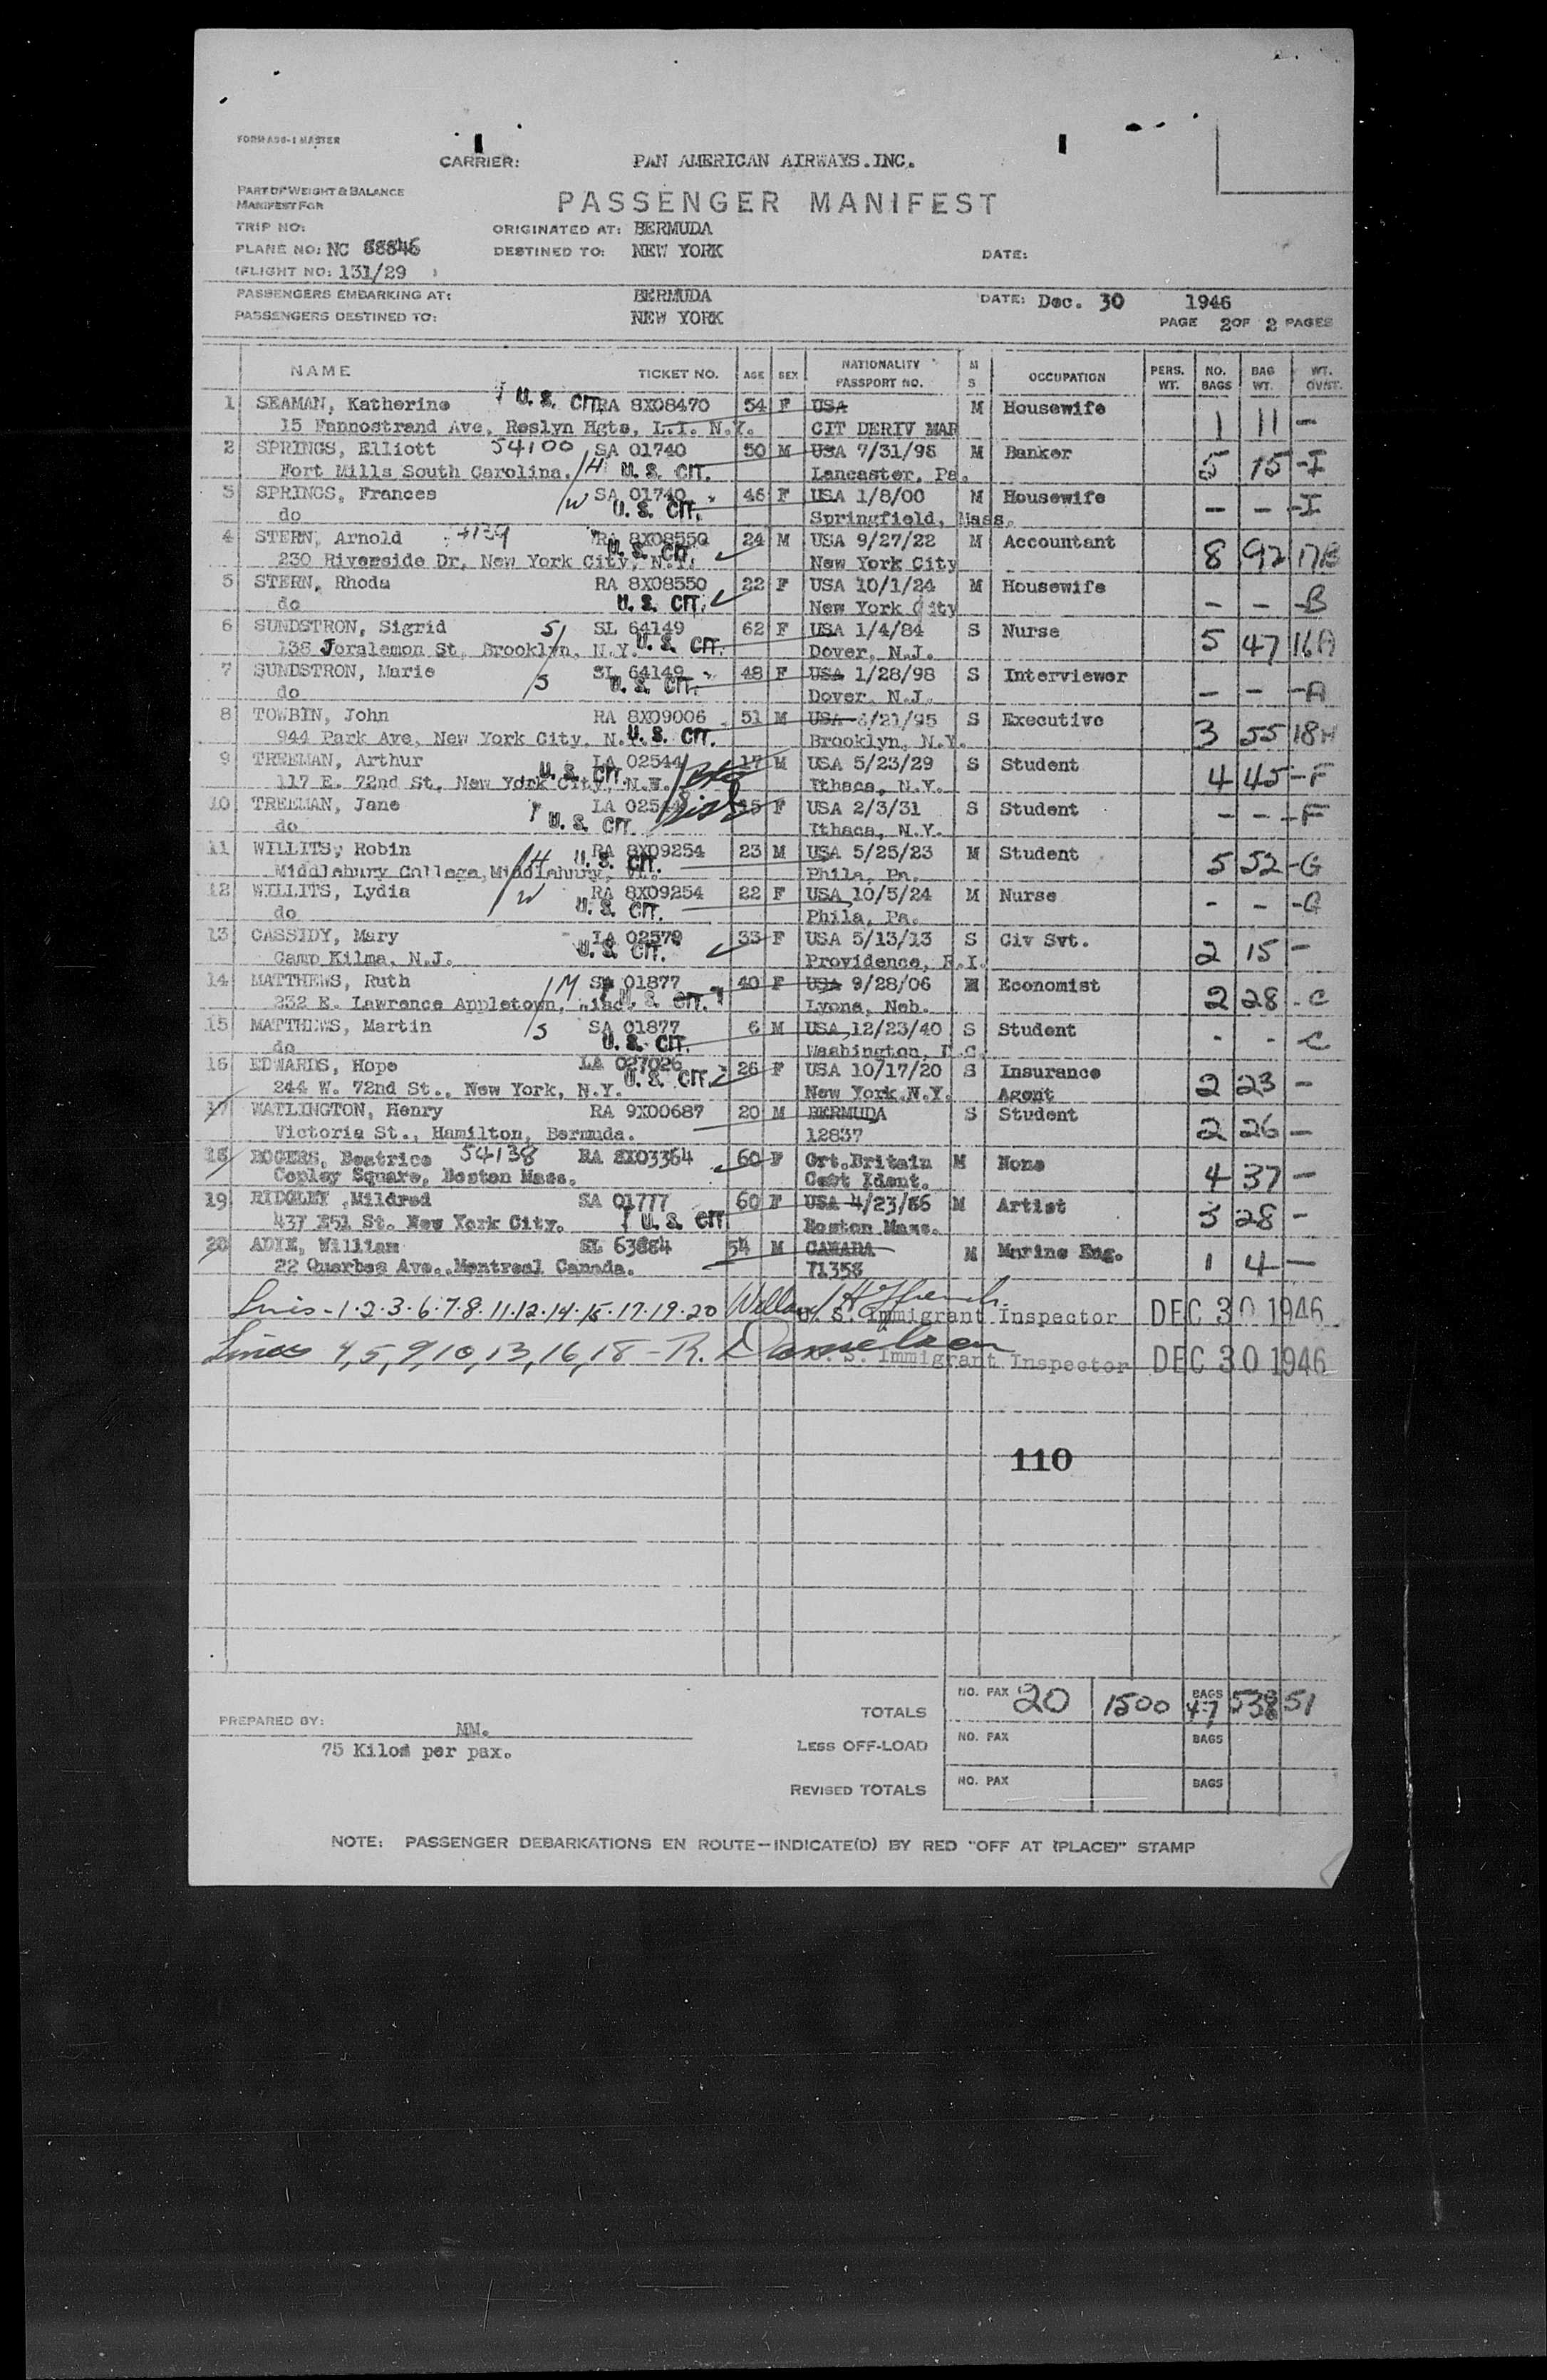 FORM A96-1 MASTER
CARRIER: PAN AMERICAN AIRWAYS.INC.
PART OF WEIGHT & BALANCE
MANIFEST FOR
PASSENGER MANIFEST
TRIP NO: ORIGINATED AT: BERMUDA
PLANE NO: NC 88846 DESTINED TO: NEW YORK DATE:
(FLIGHT NO: 131/29 )
PASSENGERS EMBARKING AT: BERMUDA DATE: Dec. 30 1946
PASSENGERS DESTINED TO: NEW YORK PAGE 2 OF 2 PAGES
NAME TICKET NO. AGE SEX NATIONALITY PASSPORT NO. M S OCCUPATION PERS. WT. NO. BAGS BAG WT. WT. OVST.
1 SEAMAN, Katherine U. S. CIT. RA 8X08470 54 F USA M Housewife 1 11 -
15 Fannostrand Ave, Roslyn Hgts, L.I. N.Y. CIT DERIV MAR
2 SPRINGS, Elliott 54100 SA 01740 50 M USA 7/31/96 M Banker 5 75 -I
Fort Mills South Carolina. /H U. S. CIT. Lancaster, Pa.
3 SPRINGS, Frances /W SA 01740 46 F USA 1/8/00 M Housewife - - -I
do U. S. CIT. Springfield, Mass.
4 STERN, Arnold RA 8X08550 24 M USA 9/27/22 M Accountant 8 92 17B
230 Riverside Dr, New York City, N.Y. U. S. CIT New York City
5 STERN, Rhoda RA 8X08550 22 F USA 10/1/24 M Housewife - - -B
do U. S. CIT. New York City
6 SUNDSTRON, Sigrid S/ SL 64149 62 F USA 1/4/84 S Nurse 5 47 16A
136 Joralemon St, Brooklyn, N.Y. U. S. CIT. Dover, N.J.
7 SUNDSTRON, Marie /S SL 64149 48 F USA 1/28/98 S Interviewer - - -A
do U. S. CIT. Dover, N.J.
8 TOWBIN, John RA 8X09006 51 M USA 6/21/95 S Executive 3 55 18H
944 Park Ave, New York City, N.Y. U. S. CIT. Brooklyn, N.Y.
9 TREEMAN, Arthur LA 02544 17 M USA 5/23/29 S Student 4 45 -F
117 E. 72nd St, New York City, N.Y. U. S. CIT Ithaca, N.Y.
10 TREEMAN, Jane LA 02544 15 F USA 2/3/31 S Student - - -F
do U. S. CIT. Ithaca, N.Y.
11 WILLITS, Robin /H RA 8X09254 23 M USA 5/25/23 M Student 5 52 -G
Middlebury College, Middlebury, Vt. U. S. CIT. Phila, Pa.
12 WILLITS, Lydia /W RA 8X09254 22 F USA 10/5/24 M Nurse - - -G
do U. S. CIT. Phila, Pa.
13 CASSIDY, Mary LA 02579 33 F USA 5/13/13 S Civ Svt. 2 15 -
Camp Kilma, N.J. U. S. CIT. Providence, R.I.
14 MATTHEWS, Ruth /M SA 01877 40 F USA 9/28/06 M Economist 2 28 -C
232 E. Lawrence Appleton, U. S. CIT. Lyons, Neb.
15 MATTHEWS, Martin /S SA 01877 6 M USA 12/23/40 S Student - - C
do U. S. CIT. Washington, D.C.
16 EDWARDS, Hope LA 027026 26 F USA 10/17/20 S Insurance 2 23 -
244 W. 72nd St., New York, N.Y. U. S. CIT. New York.N.Y. Agent
17 WATLINGTON, Henry RA 9X00687 20 M BERMUDA S Student 2 26 -
Victoria St., Hamilton, Bermuda. 12837
18 ROGERS, Beatrice 54138 RA 8X03364 60 F Grt.Britain M None 4 37 -
Copley Square, Boston Mass. Cert Ident.
19 RIDGLEY ,Mildred SA 01777 60 F USA 4/23/86 M Artist 3 28 -
437 E51 St. New York City. U. S. CIT Boston Mass.
20 ADIE, William SL 63884 54 M CANADA M Marine Eng. 1 4 -
22 Querbes Ave.,Montreal Canada. 71358
Lines - 1.2.3.6.7.8.11.12.14.15.17.19.20 U. S. Immigrant Inspector DEC 30 1946
Lines 4,5,9,10,13,16,18 - R. Danielsen U. S. Immigrant Inspector DEC 30 1946
110
TOTALS NO. PAX 20 1500 BAGS 47 538 51
PREPARED BY: MM.
75 Kilos per pax.
LESS OFF-LOAD NO. PAX BAGS
REVISED TOTALS NO. PAX BAGS
NOTE: PASSENGER DEBARKATIONS EN ROUTE—INDICATE(D) BY RED "OFF AT (PLACE)" STAMP